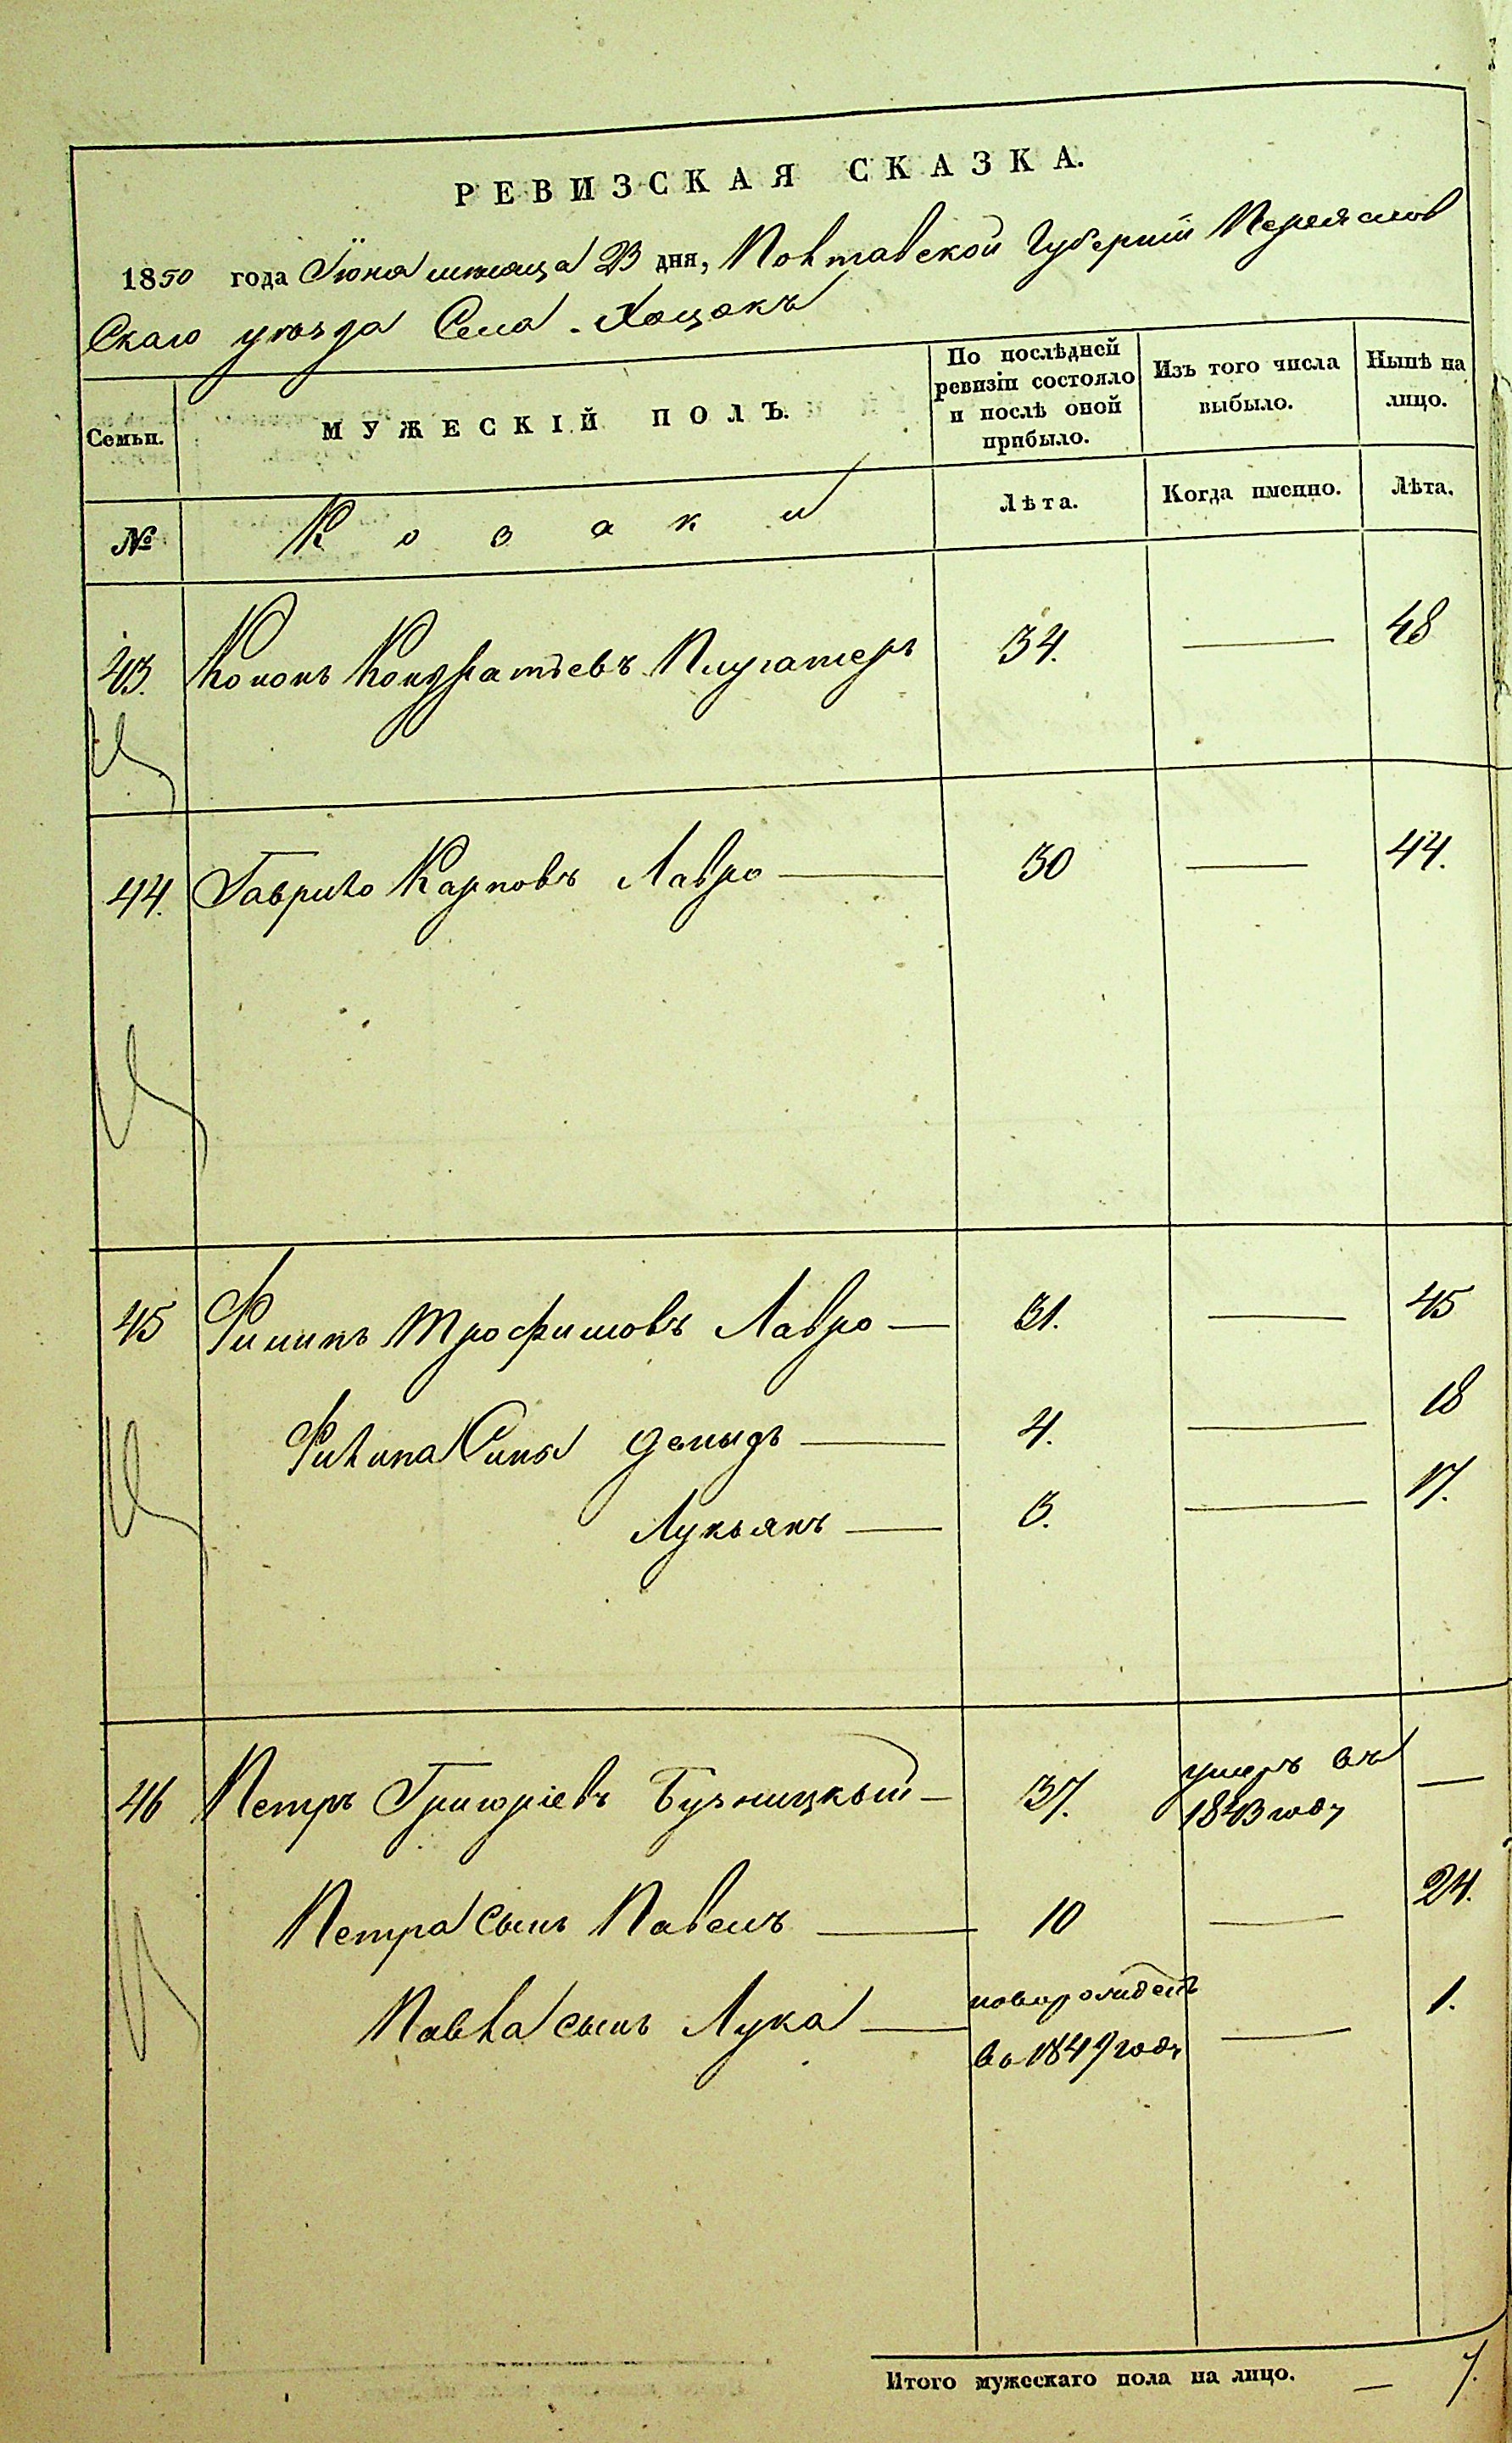 РЕВИЗСКАЯ СКАЗКА.
1850 года Іюня мѣсяца 23 дня, Полтавской Губерніи Переяслов
Скаго уѣзда Села Хоцокъ
Семьи.
МУЖЕСКІЙ ПОЛЪ.
По послѣдней ревизіи состояло и послѣ оной прибыло.
Изъ того числа выбыло.
Нынѣ на лицо.
№
Козаки
Лѣта.
Когда именно.
Лѣта.
43. Кононъ Кондратьевъ 34. — 48
44. Гаврило Карповъ Лавро — 30 — 44.
45 Филипъ Трофимовъ Лавро — 31. — 45
Филипа Сины Демыдъ — 4. — 18
Лукьянъ — 3. — 17.
46 Петръ Григоріевъ 37. умеръ въ 1843 году —
Петра сынъ Павелъ — 10 — 24.
Павла сынъ Лука — новорожденъ во 1849 году — 1.
Итого мужескаго пола на лицо. — 7.